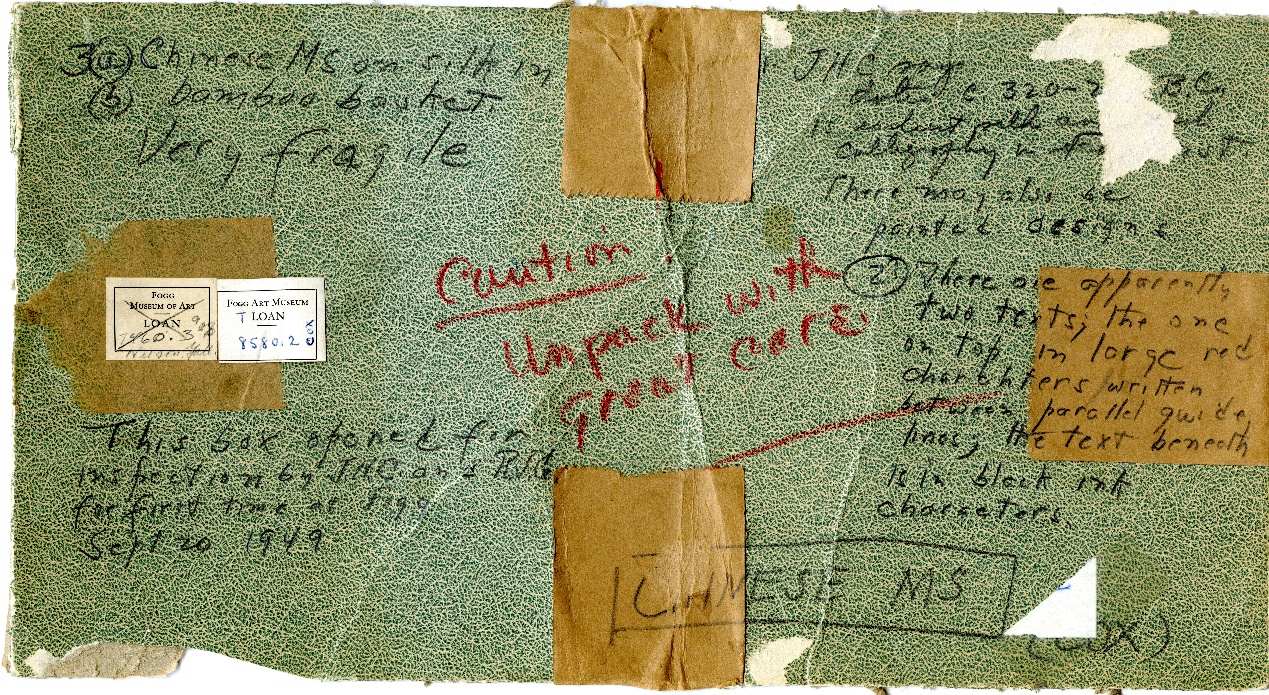 3 (a) Chinese MS on silk in
(b) bamboo basket
Very fragile
FOGG
MUSEUM OF ART
LOAN
1460.3
FOGG ART MUSEUM
T LOAN
8580.2
COX
This box opened for
inspection by JHC and
for first time at Fogg
Sept 20 1949
Caution.
Unpack with
great care
JHC says
date c 320- B.C.
calligraphy
There may also be
painted designs
(2) There are apparently
two texts; the one
on top in large red
charahters written
between parallel guide
lines; the text beneath
is in black ink
characters.
CHINESE MS
(COX)